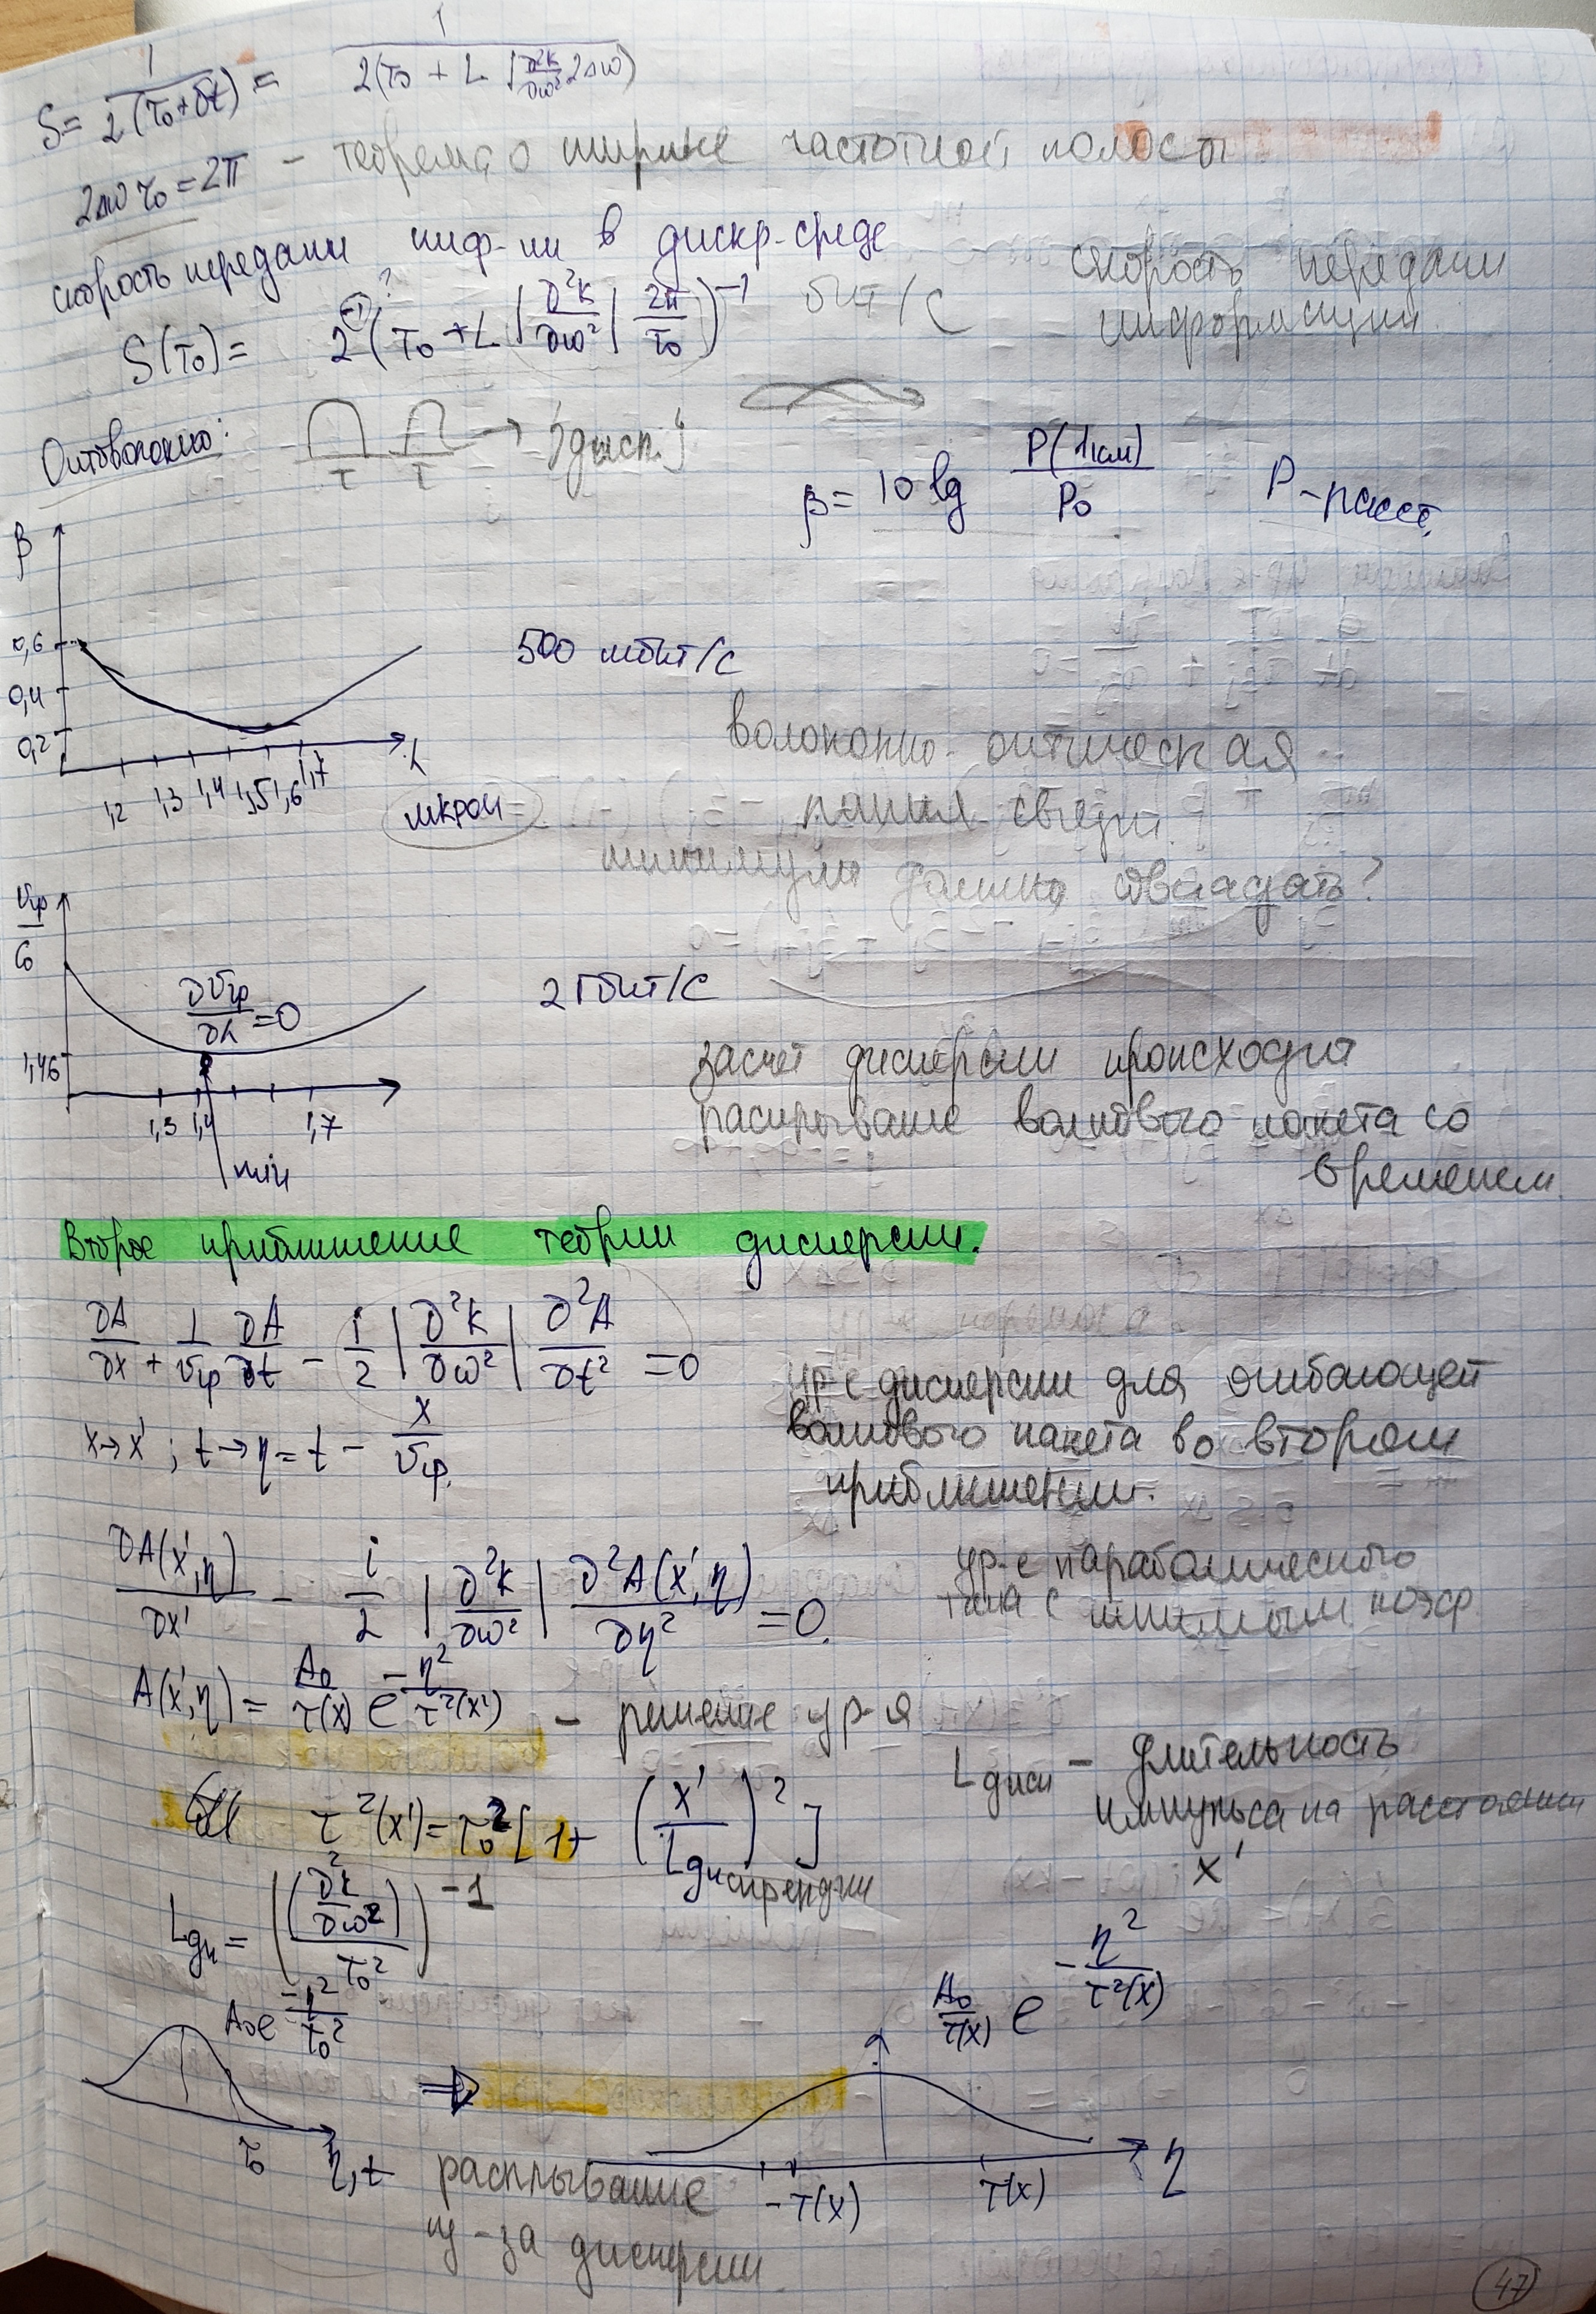 S = 1 / 2(τ₀ + δt) = 1 / 2(τ₀ + L |∂²k/∂ω²| 2Δω)
2Δω τ₀ = 2π – теорема о ширине частотной полосы
скорость передачи инф-ии в диспр-среде
скорость передачи информации
S(τ₀) = 2⁽⁻¹⁾? (τ₀ + L |∂²k/∂ω²| 2π/τ₀)⁻¹ бит/с
Оптоволокно: τ τ → {дисп.}
β = 10 lg P(1км)/P₀ P –
β
0,6
0,4
0,2
1,2 1,3 1,4 1,5 1,6 1,7 λ
микрон
500 мбит/с
волоконно-оптическая
линия связи.
минимумы должны совпадать?
vгр/c₀
∂vгр/∂λ = 0
1,46
1,3 1,4 1,7
min
2 Гбит/с
засчет дисперсии происходит
расплывание волнового пакета со
временем
Второе приближение теории дисперсии.
∂A/∂x + 1/vгр ∂A/∂t – i/2 |∂²k/∂ω²| ∂²A/∂t² = 0
ур-е дисперсии для огибающей
волнового пакета во втором
приближении.
x → x' ; t → η = t – x/vгр.
∂A(x',η)/∂x' – i/2 |∂²k/∂ω²| ∂²A(x',η)/∂η² = 0.
ур-е параболического
типа с мнимым коэф
A(x',η) = A₀/τ(x) e^(–η²/τ²(x')) – решение ур-я
τ²(x') = τ₀²[1 + (x'/Lдисперсии)²]
Lдисп – длительность
импульса на расстоянии
x'
Lди = ((∂²k/∂ω²)/τ₀²)⁻¹
A₀e^(–η²/τ₀²)
A₀/τ(x) e^(–η²/τ²(x))
⇒
τ₀ η,t
–τ(x) τ(x) η
расплывание
из-за дисперсии
47